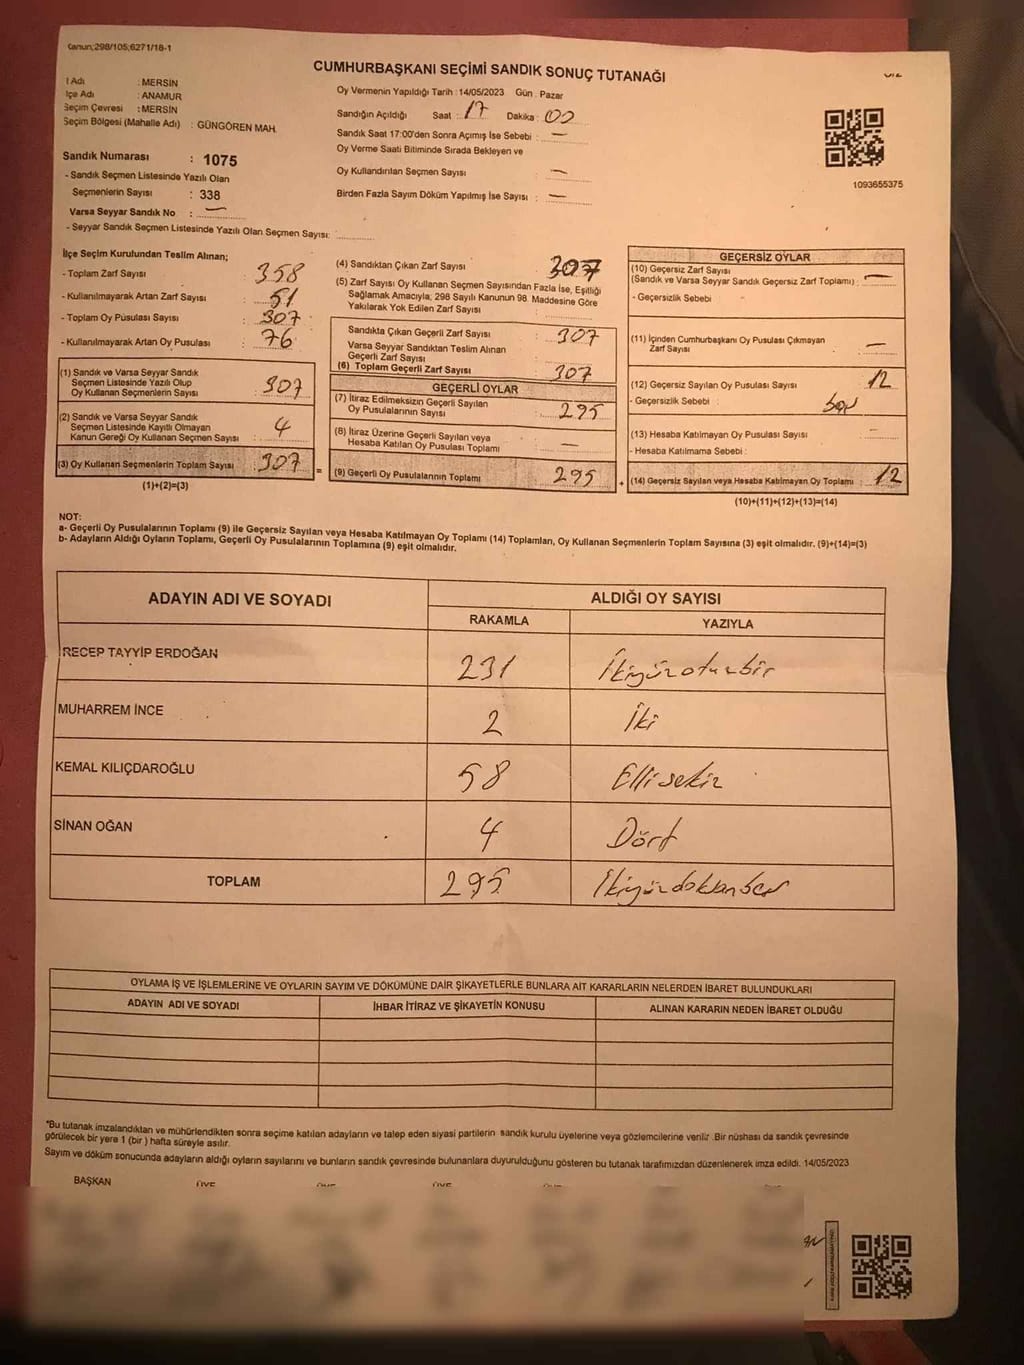 Kanun;298/105;6271/18-1
CUMHURBAŞKANI SEÇİMİ SANDIK SONUÇ TUTANAĞI
İl Adı : MERSİN
İlçe Adı : ANAMUR
Seçim Çevresi : MERSİN
Seçim Bölgesi (Mahalle Adı) : GÜNGÖREN MAH.
Sandık Numarası : 1075
- Sandık Seçmen Listesinde Yazılı Olan
Seçmenlerin Sayısı : 338
Varsa Seyyar Sandık No : —
- Seyyar Sandık Seçmen Listesinde Yazılı Olan Seçmen Sayısı:
Oy Vermenin Yapıldığı Tarih : 14/05/2023 Gün : Pazar
Sandığın Açıldığı Saat : 17 Dakika : 00
Sandık Saat 17:00'den Sonra Açımış İse Sebebi : —
Oy Verme Saati Bitiminde Sırada Bekleyen ve
Oy Kullandırılan Seçmen Sayısı —
Birden Fazla Sayım Döküm Yapılmış İse Sayısı : —
1093655375
İlçe Seçim Kurulundan Teslim Alınan;
- Toplam Zarf Sayısı 358
- Kullanılmayarak Artan Zarf Sayısı : 51
- Toplam Oy Pusulası Sayısı : 307
- Kullanılmayarak Artan Oy Pusulası : 76
(1) Sandık ve Varsa Seyyar Sandık
Seçmen Listesinde Yazılı Olup
Oy Kullanan Seçmenlerin Sayısı : 307
(2) Sandık ve Varsa Seyyar Sandık
Seçmen Listesinde Kayıtlı Olmayan
Kanun Gereği Oy Kullanan Seçmen Sayısı : 4
(3) Oy Kullanan Seçmenlerin Toplam Sayısı : 307 =
(1)+(2)=(3)
(4) Sandıktan Çıkan Zarf Sayısı 307
(5) Zarf Sayısı Oy Kullanan Seçmen Sayısından Fazla İse, Eşitliği
Sağlamak Amacıyla; 298 Sayılı Kanunun 98. Maddesine Göre
Yakılarak Yok Edilen Zarf Sayısı :
Sandıkta Çıkan Geçerli Zarf Sayısı : 307
Varsa Seyyar Sandıktan Teslim Alınan
Geçerli Zarf Sayısı :
(6) Toplam Geçerli Zarf Sayısı : 307
GEÇERLİ OYLAR
(7) İtiraz Edilmeksizin Geçerli Sayılan
Oy Pusulalarının Sayısı : 295
(8) İtiraz Üzerine Geçerli Sayılan veya
Hesaba Katılan Oy Pusulası Toplamı : —
(9) Geçerli Oy Pusulalarının Toplamı : 295 +
GEÇERSİZ OYLAR
(10) Geçersiz Zarf Sayısı
(Sandık ve Varsa Seyyar Sandık Geçersiz Zarf Toplamı) : —
- Geçersizlik Sebebi
(11) İçinden Cumhurbaşkanı Oy Pusulası Çıkmayan
Zarf Sayısı : —
(12) Geçersiz Sayılan Oy Pusulası Sayısı : 12
- Geçersizlik Sebebi :
(13) Hesaba Katılmayan Oy Pusulası Sayısı : —
- Hesaba Katılmama Sebebi :
(14) Geçersiz Sayılan veya Hesaba Katılmayan Oy Toplamı : 12
(10)+(11)+(12)+(13)=(14)
NOT:
a- Geçerli Oy Pusulalarının Toplamı (9) ile Geçersiz Sayılan veya Hesaba Katılmayan Oy Toplamı (14) Toplamları, Oy Kullanan Seçmenlerin Toplam Sayısına (3) eşit olmalıdır. (9)+(14)=(3)
b- Adayların Aldığı Oyların Toplamı, Geçerli Oy Pusulalarının Toplamına (9) eşit olmalıdır.
ADAYIN ADI VE SOYADI ALDIĞI OY SAYISI
RAKAMLA YAZIYLA
RECEP TAYYİP ERDOĞAN 231 İkiyüzotuzbir
MUHARREM İNCE 2 İki
KEMAL KILIÇDAROĞLU 58 Ellisekiz
SİNAN OĞAN 4 Dört
TOPLAM 295 İkiyüzdoksanbeş
OYLAMA İŞ VE İŞLEMLERİNE VE OYLARIN SAYIM VE DÖKÜMÜNE DAİR ŞİKAYETLERLE BUNLARA AİT KARARLARIN NELERDEN İBARET BULUNDUKLARI
ADAYIN ADI VE SOYADI İHBAR İTİRAZ VE ŞİKAYETİN KONUSU ALINAN KARARIN NEDEN İBARET OLDUĞU
"Bu tutanak imzalandıktan ve mühürlendikten sonra seçime katılan adayların ve talep eden siyasi partilerin sandık kurulu üyelerine veya gözlemcilerine verilir .Bir nüshası da sandık çevresinde
görülecek bir yere 1 (bir ) hafta süreyle asılır.
Sayım ve döküm sonucunda adayların aldığı oyların sayılarını ve bunların sandık çevresinde bulunanlara duyurulduğunu gösteren bu tutanak tarafımızdan düzenlenerek imza edildi. 14/05/2023
BAŞKAN ÜYE